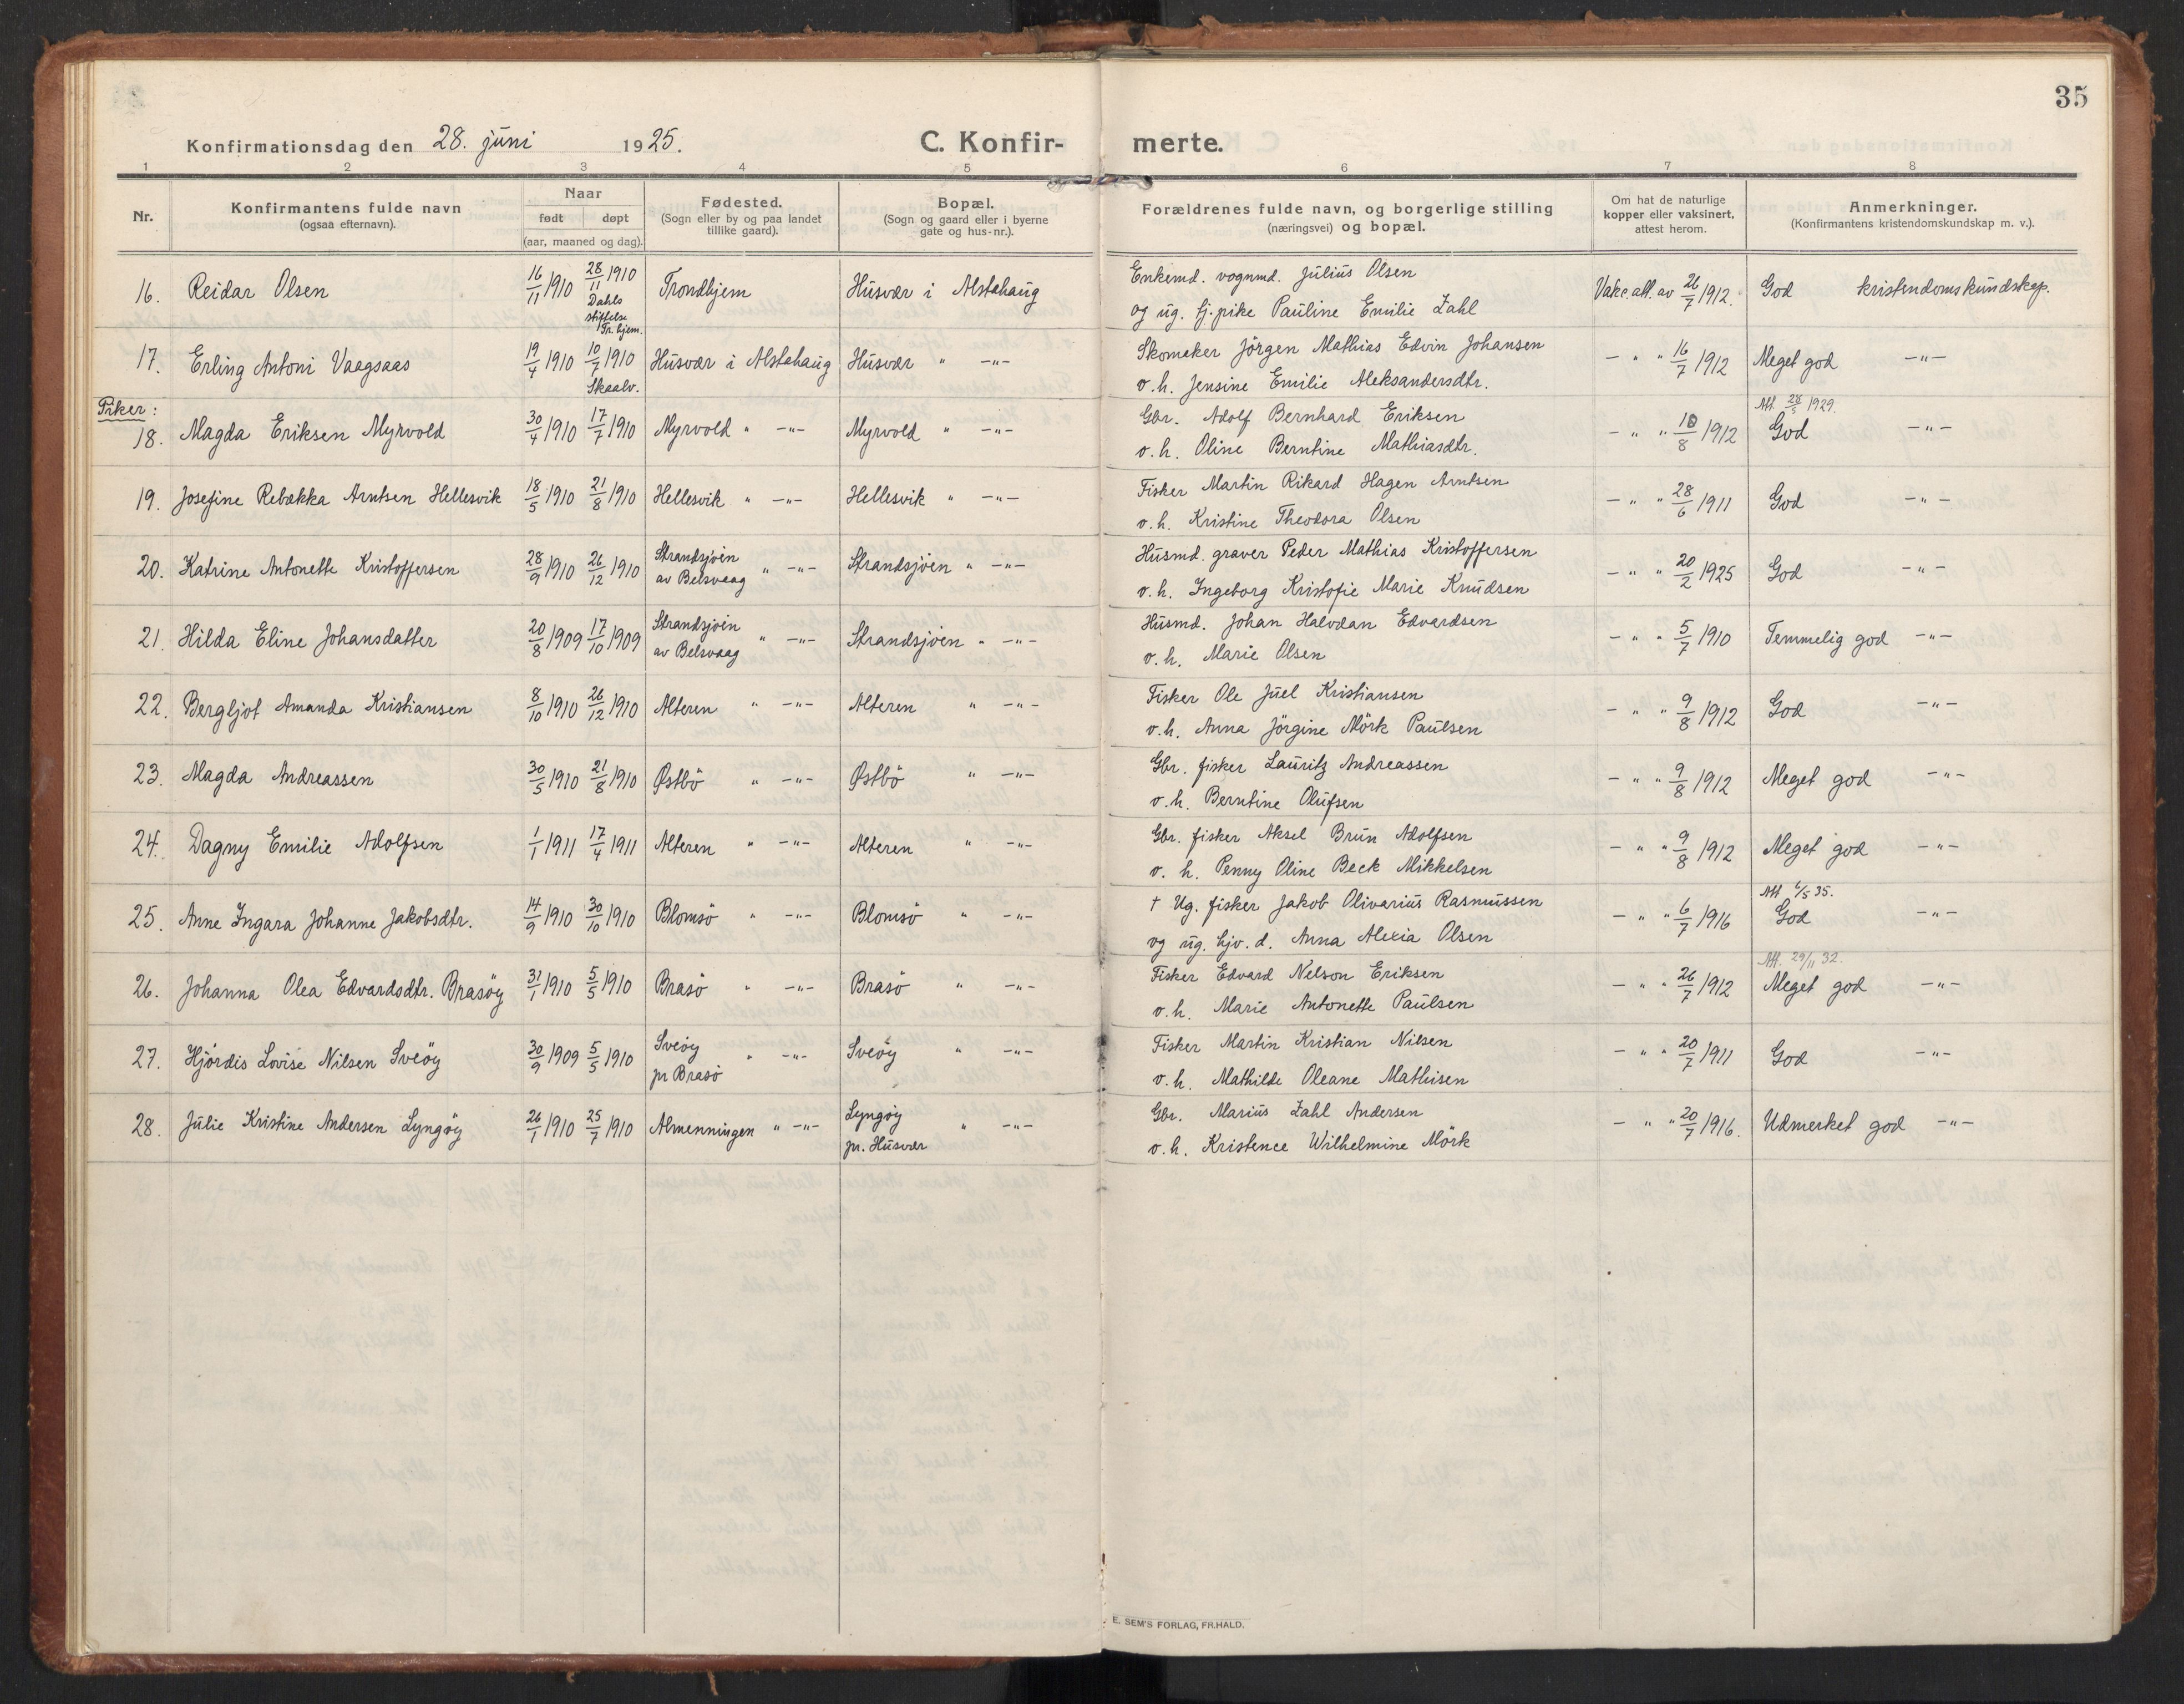 35
Konfirmationsdag den 28. juni 1925.
C. Konfir-
merte.
1 2 3 4 5 6 7 8
Nr.
Konfirmantens fulde navn
(ogsaa efternavn).
Naar
født døpt
(aar, maaned og dag).
Fødested.
(Sogn eller by og paa landet
tillike gaard).
Bopæl.
(Sogn og gaard eller i byerne
gate og hus-nr.).
Forældrenes fulde navn, og borgerlige stilling
(næringsvei) og bopæl.
Om hat de naturlige
kopper eller vaksinert,
attest herom.
Anmerkninger.
(Konfirmantens kristendomskundskap m. v.).
16. Reidar Olsen 16/11 1910 28/11 1910 Trondhjem Husvær i Alstahaug
Dahls
stiftelse
Tr.hjem.
Enkemd. vognmd. Julius Olsen
og ug. tj.pike Pauline Emilie Zahl
Vakc.att. av 26/7 1912. God kristendomskundskap.
17. Erling Antoni Vaagsaas 19/4 1910 10/7 1910 Husvær i Alstahaug Husvær " -"-
Skaalv.
Skomaker Jörgen Mathias Edvin Johansen
o.h. Jensine Emilie Aleksandersdtr.
- " " 16/7 1912 Meget god -"-
Piker:
18. Magda Eriksen Myrvold 30/4 1910 17/7 1910 Myrvold " -"- Myrvold " -"-
Gbr. Adolf Bernhard Eriksen
o.h. Oline Berntine Mathiasdtr.
Att 28/5 1929.
- " " 10/8 1912 God -"-
19. Josefine Rebækka Arntsen Hellesvik 18/5 1910 21/8 1910 Hellesvik " -"- Hellesvik " -"-
Fisker Martin Rikard Hagen Arntsen
o.h. Kristine Theodora Olsen
- " " 28/6 1911 God -"-
20. Katrine Antonette Kristoffersen 28/9 1910 26/12 1910 Strandsjöen
av Belsvaag " -"- Strandsjöen " -"-
Husmd. graver Peder Mathias Kristoffersen
o.h. Ingeborg Kristofie Marie Knudsen
- " " 20/2 1925 God -"-
21. Hilda Eline Johansdatter 20/8 1909 17/10 1909 Strandsjöen
av Belsvaag " -"- Strandsjöen " -"-
Husmd. Johan Halvdan Edvardsen
o.h. Marie Olsen
- " " 5/7 1910 Temmelig god -"-
22. Bergljot Amanda Kristiansen 8/10 1910 26/12 1910 Alteren " -"- Alteren " -"-
Fisker Ole Juel Kristiansen
o.h. Anna Jörgine Mörk Paulsen
- " " 9/8 1912 God -"-
23. Magda Andreassen 30/5 1910 21/8 1910 Østbö " -"- Østbö " -"-
Gbr. fisker Lauritz Andreassen
o.h. Berntine Olufsen
- " " 9/8 1912 Meget god -"-
24. Dagny Emilie Adolfsen 1/1 1911 17/4 1911 Alteren " -"- Alteren " -"-
Gbr. fisker Aksel Brun Adolfsen
o.h. Penny Oline Beck Mikkelsen
- " " 9/8 1912 Meget god -"-
25. Anne Ingara Johanne Jakobsdtr. 14/9 1910 30/10 1910 Blomsö " -"- Blomsö " -"-
† Ug. fisker Jakob Olivarius Rasmussen
og ug. hjv. d. Anna Alexia Olsen
Att 6/5 35.
- " " 6/7 1916 God -"-
26. Johanna Olea Edvardsdtr. Brasöy 31/1 1910 5/5 1910 Brasö " -"- Brasö " -"-
Fisker Edvard Nelson Eriksen
o.h. Marie Antonette Paulsen
Att. 29/11 32.
- " " 26/7 1912 Meget god -"-
27. Hjördis Lovise Nilsen Sveöy 30/9 1909 5/5 1910 Sveöy
pr Brasö " -"- Sveöy " -"-
Fisker Martin Kristian Nilsen
o.h. Mathilde Oleane Mathisen
- " " 20/7 1911 God -"-
28. Julie Kristine Andersen Lyngöy 26/1 1910 25/7 1910 Almenningen " -"- Lyngöy
pr. Husvær " -"-
Gbr. Marius Zahl Andersen
o.h. Kristence Wilhelmine Mörk
- " " 20/7 1916. Udmerket god -"-
E. SEM'S FORLAG, FR.HALD.